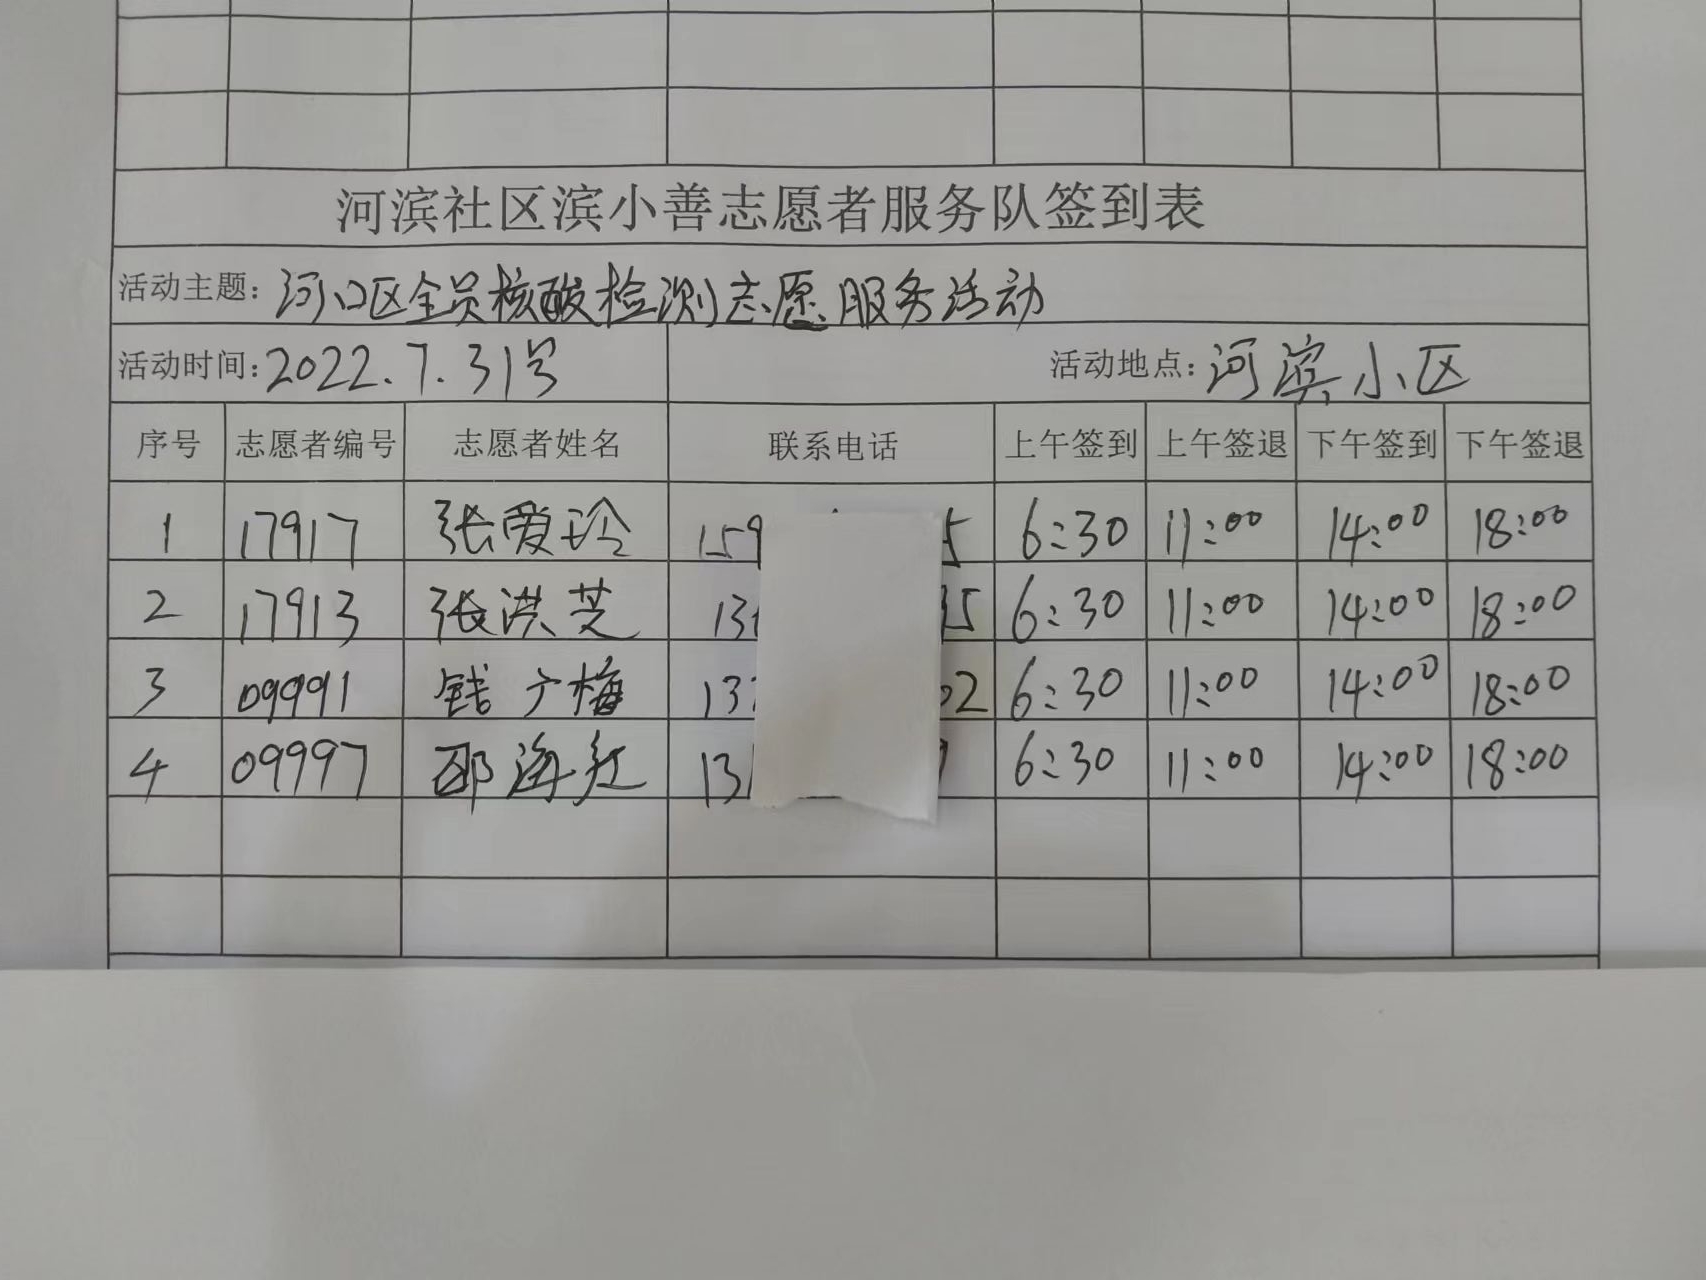 河滨社区滨小善志愿者服务队签到表
活动主题: 河口区全员核酸检测志愿服务活动
活动时间: 2022.7.31号 活动地点: 河滨小区
序号 志愿者编号 志愿者姓名 联系电话 上午签到 上午签退 下午签到 下午签退
1 17917 张爱玲 159 5 6:30 11:00 14:00 18:00
2 17913 张洪芝 13 35 6:30 11:00 14:00 18:00
3 09991 钱广梅 13 02 6:30 11:00 14:00 18:00
4 09997 邵海红 13 6:30 11:00 14:00 18:00